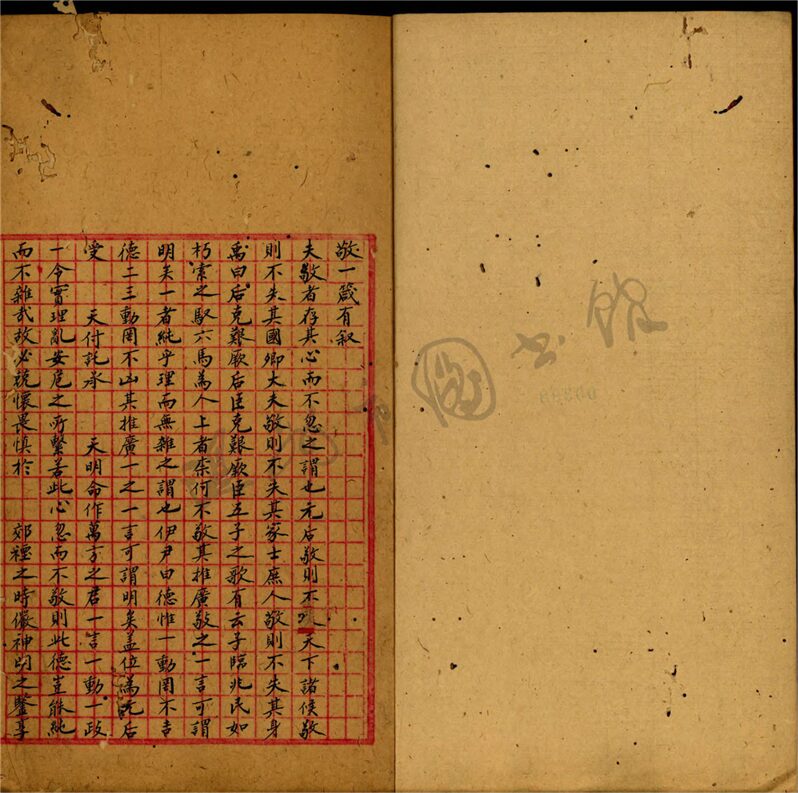 敬一箴有叙
夫敬者存其心而不忽之謂也元后敬則不失天下諸侯敬
則不失其國卿大夫敬則不失其家士庶人敬則不失其身
禹曰后克艱厥后臣克艱厥臣五子之歌有云予臨兆民如
朽索之馭六馬為人上者柰何不敬其推廣敬之一言可謂
明矣一者純乎理而無雜之謂也伊尹曰德惟一動罔不吉
德二三動罔不凶其推廣一之一言可謂明矣盖位為元后
受 天付託承 天明命作萬方之君一言一動一政
一令實理亂安危之所繫若此心忽而不敬則此德豈能純
而不雜哉故必兢懷畏慎於 郊禋之時儼神明之鑒享